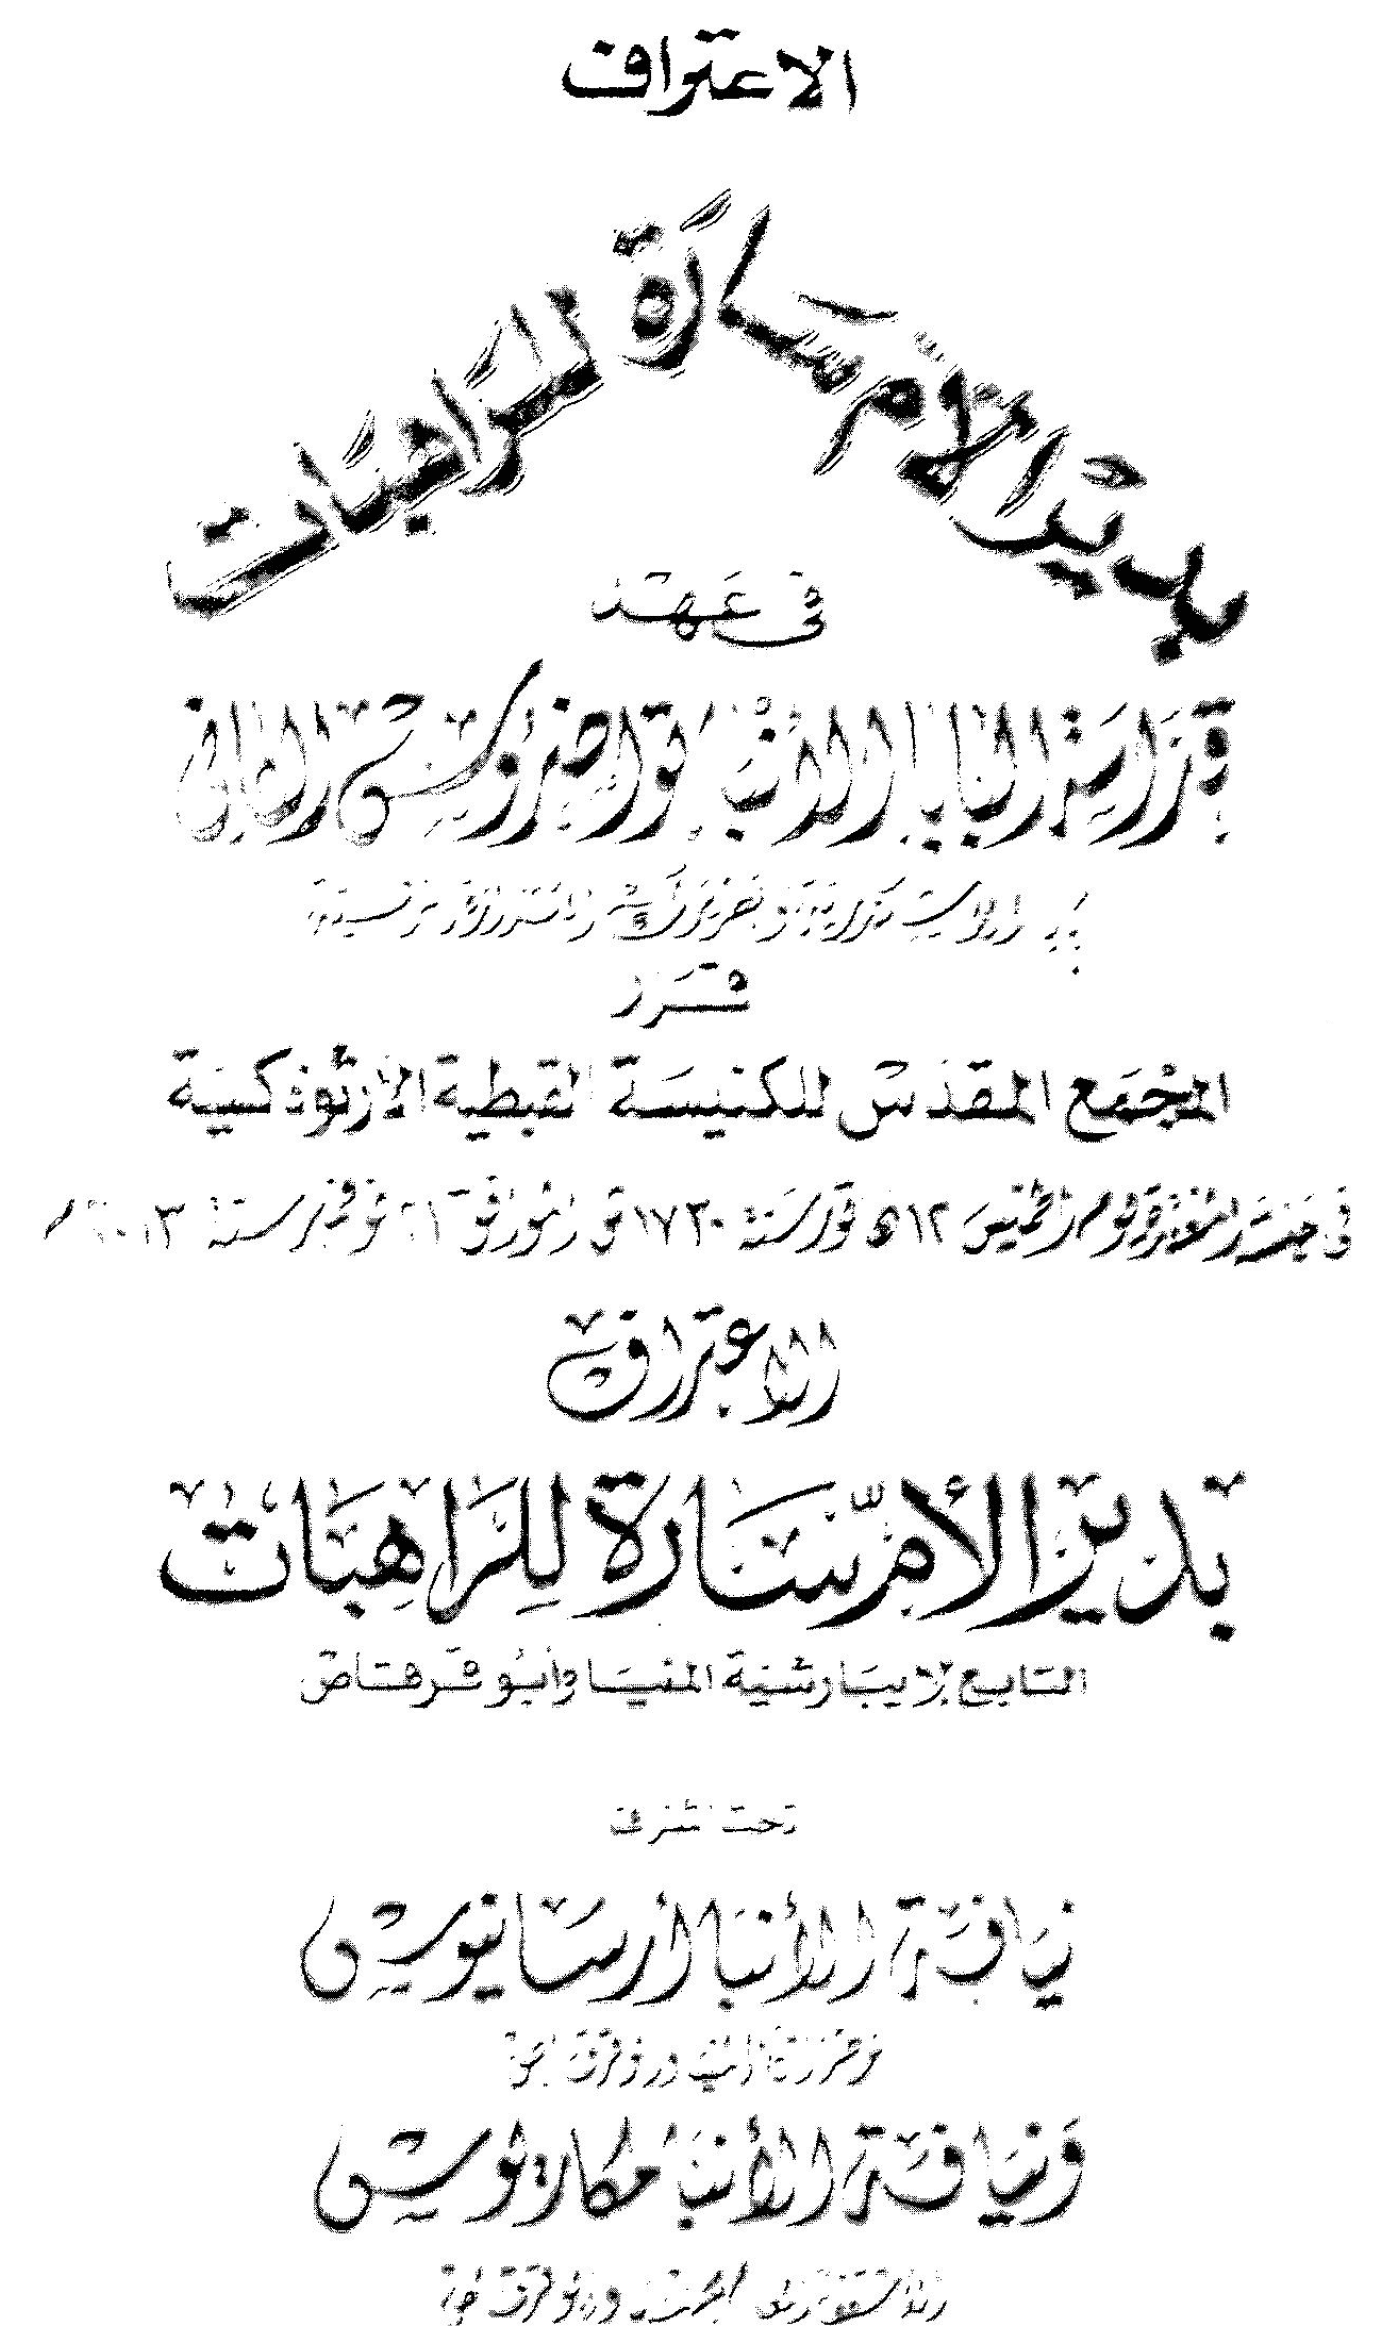 الاعتراف
بدير الأم سارة للراهبات
فى عهد
قداسة البابا الأنبا تواضروس الثانى
بابا الإسكندرية وبطريرك الكرازة المرقسية
قرر
المجمع المقدس للكنيسة القبطية الارثوذكسية
فى جلسته المنعقدة يوم الخميس ١٢ هاتور سنة ١٧٣٠ ق الموافق ٢١ نوفمبر سنة ٢٠١٣ م
الاعتراف
بدير الأم سارة للراهبات
التابع لايبارشية المنيا وأبو قرقاص
تحت إشراف
نيافة الأنبا أرسانيوس
مطران المنيا وأبو قرقاص
ونيافة الأنبا مكاريوس
الأسقف العام المنيا وأبو قرقاص